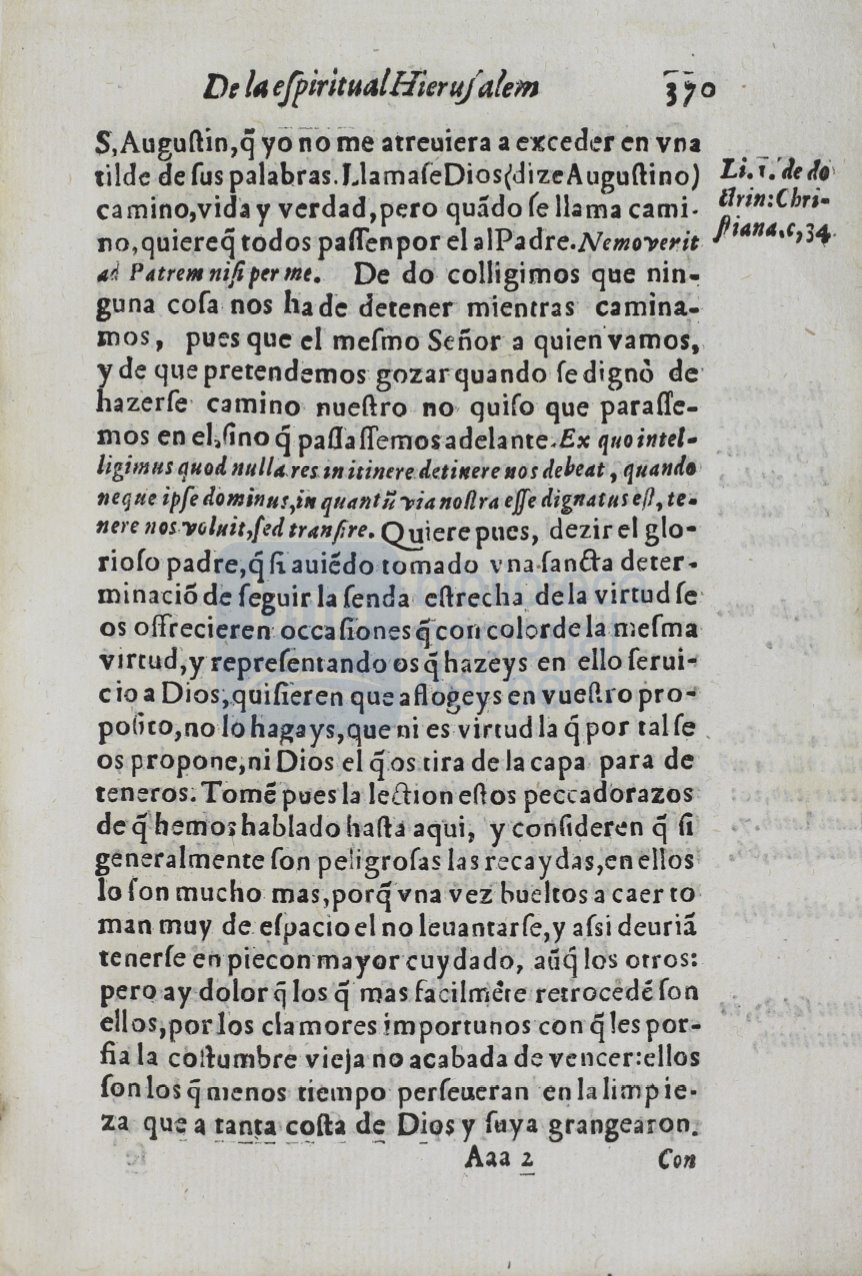 De la eſpiritual Hieruſalem 370
S, Auguſtin, q̃ yo no me atreuiera a exceder en vna
tilde de ſus palabras. Llamaſe Dios (dize Auguſtino)
camino, vida y verdad, pero quãdo ſe llama cami-
no, quiere q̃ todos paſſen por el al Padre. Nemo venit
ad Patrem niſi per me. De do colligimos que nin-
guna coſa nos ha de detener mientras camina-
mos, pues que el meſmo Señor a quien vamos,
y de que pretendemos gozar quando ſe dignò de
hazerſe camino nueſtro no quiſo que paraſſe-
mos en el, ſino q̃ paſſaſſemos adelante. Ex quo intel-
ligimus quod nulla res in itinere detinere nos debeat, quando
neque ipſe dominus, in quantũ via noſtra eſſe dignatus eſt, te-
nere nos voluit, ſed tranſire. Quiere pues, dezir el glo-
rioſo padre, q̃ ſi auiẽdo tomado vna ſancta deter-
minaciõ de ſeguir la ſenda eſtrecha de la virtud ſe
os offrecieren occaſiones q̃ con color de la meſma
virtud, y repreſentando os q̃ hazeys en ello ſerui-
cio a Dios, quiſieren que aflogeys en vueſtro pro-
poſito, no lo hagays, que ni es virtud la q̃ por tal ſe
os propone, ni Dios el q̃ os tira de la capa para de
teneros. Tomẽ pues la lection eſtos peccadorazos
de q̃ hemos hablado haſta aqui, y conſideren q̃ ſi
generalmente ſon peligroſas las recaydas, en ellos
lo ſon mucho mas, porq̃ vna vez bueltos a caer to
man muy de eſpacio el no leuantarſe, y aſsi deuriã
tenerſe en pie con mayor cuydado, aũq̃ los otros:
pero ay dolor q̃ los q̃ mas facilmẽte retrocedẽ ſon
ellos, por los clamores importunos con q̃ les por-
fia la coſtumbre vieja no acabada de vencer: ellos
ſon los q̃ menos tiempo perſeueran en la limpie-
za que a tanta coſta de Dios y ſuya grangearon.
Aaa 2 Con
Li. 1. de do
ctrin: Chri-
ſtiana. c, 34.